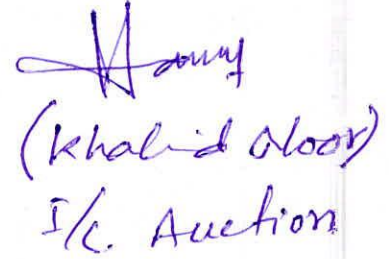 (Khalid Noor)
I/c. Auction